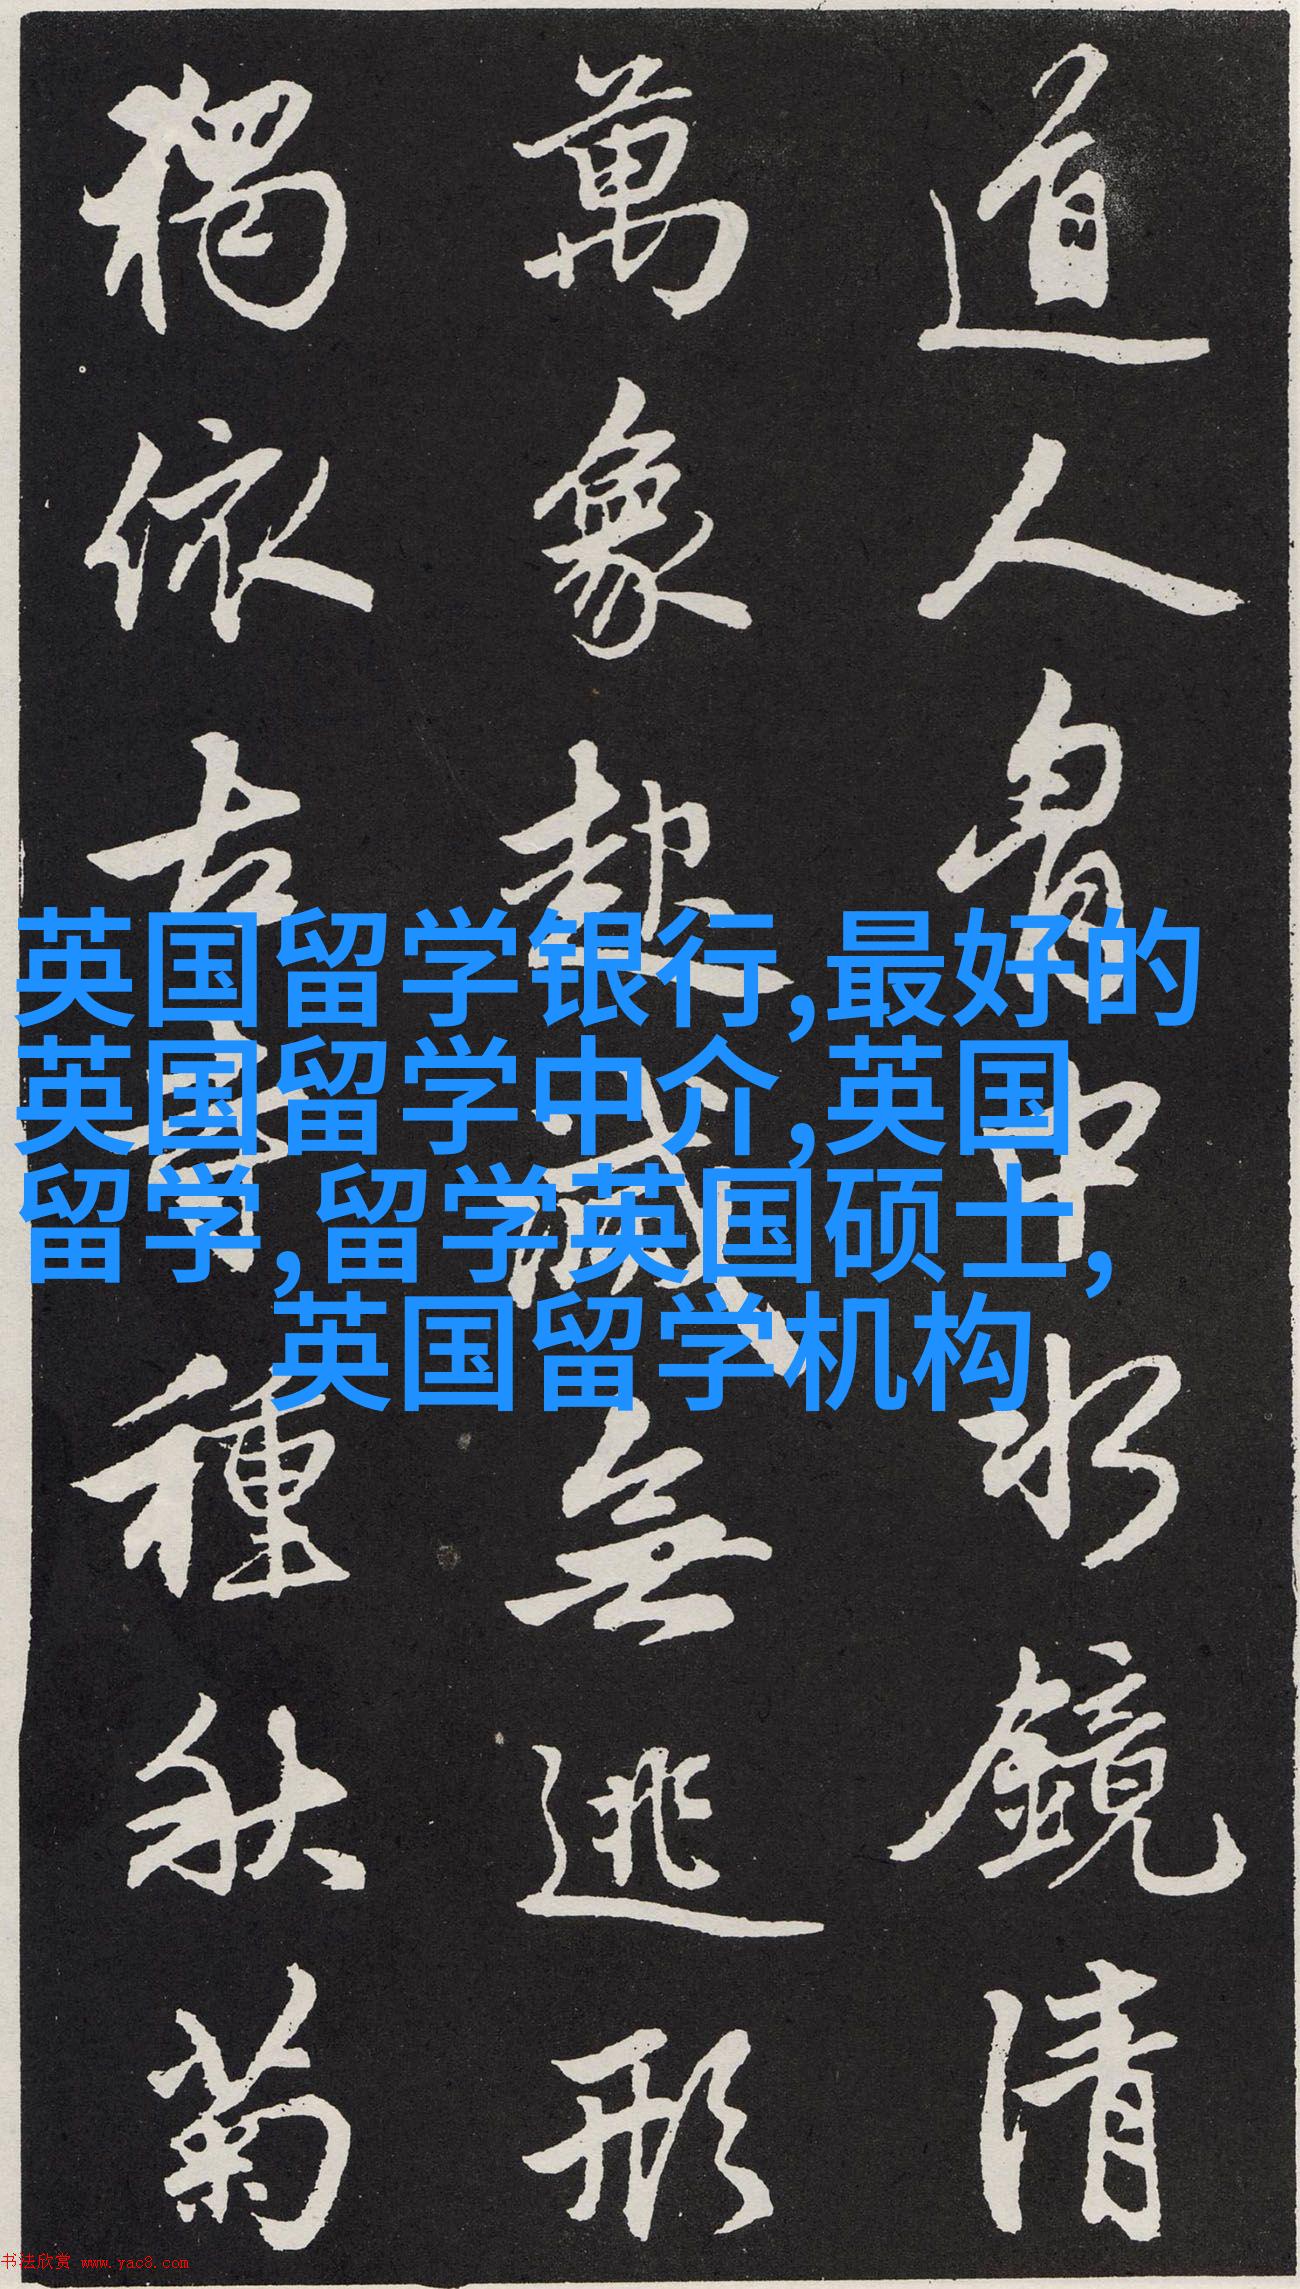 道人胷中水鏡清
萬象起滅無逃形
獨依古寺種秋菊
英国留学银行,最好的
英国留学中介,英国
留学,留学英国硕士,
英国留学机构
书法欣赏 www.yac8.com